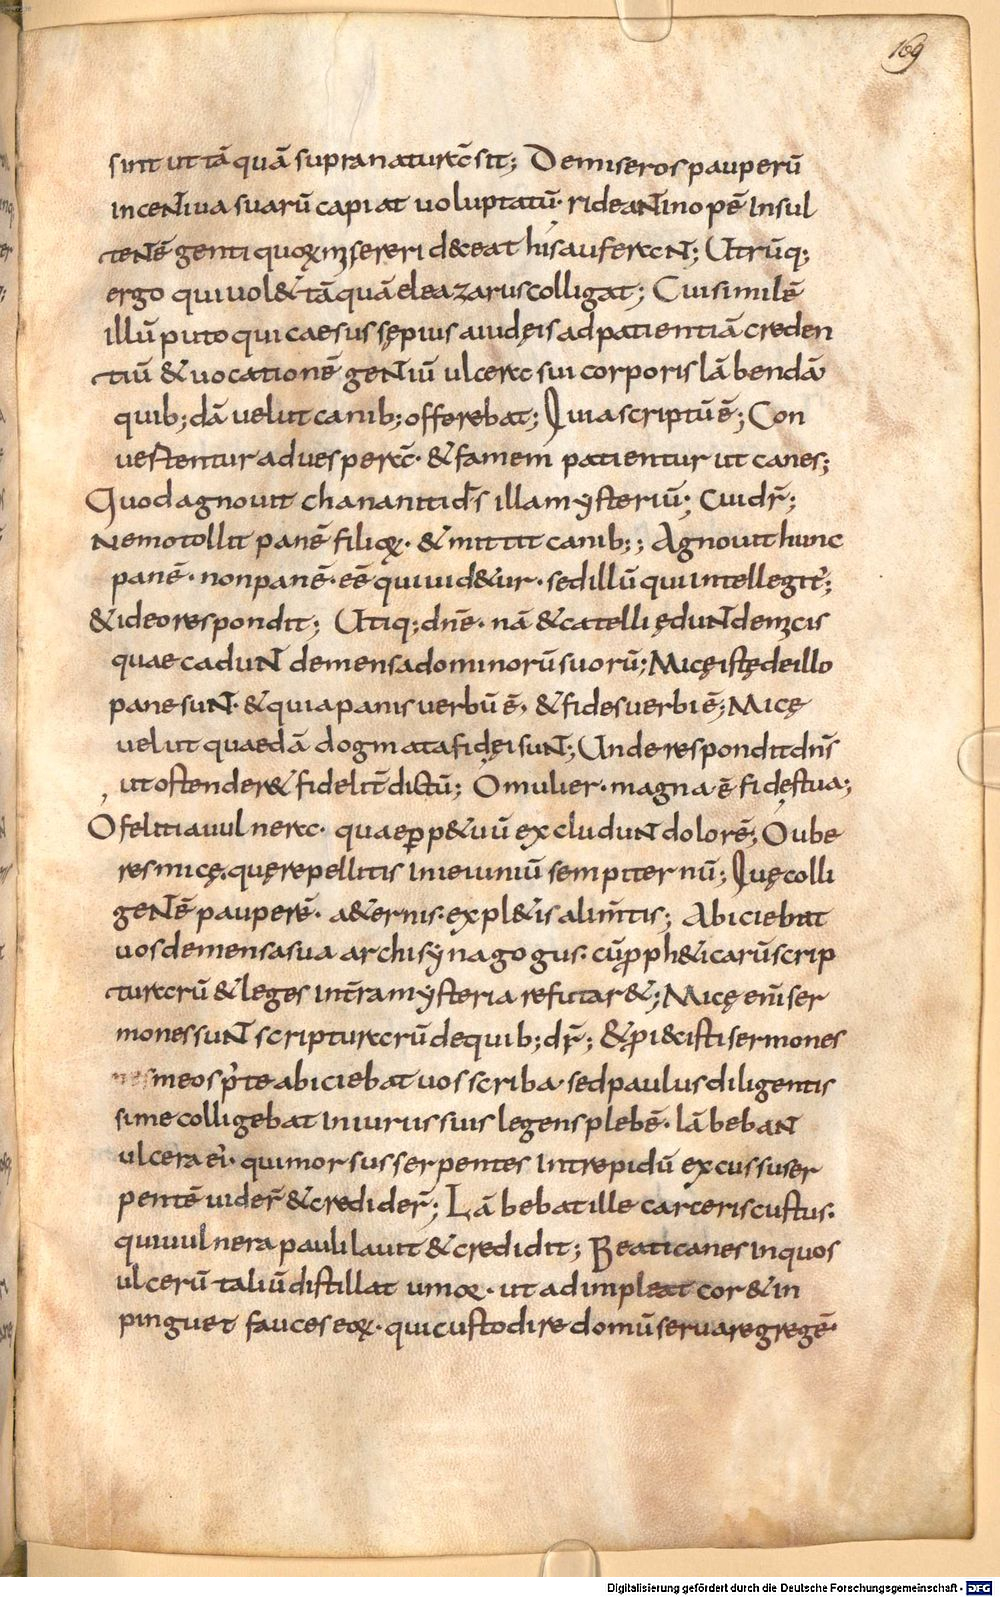 169
sint ut tā quā supra naturā sit; De miseros pauperū
incentiua suarū capiat uoluptatū· rideant inopē insul
tent egenti quorum misereri deceat his auferant; Utrūq;
ergo qui uol& tā quā eleazarus colligat; Cui similē
illū puto qui caesus sępius a iudęis ad patientiā creden
tiū & uocationē gentiū ulcera sui corporis lābendā
quib;dā uelut canib; offerebat; Quia scriptū ē; Con
uertentur ad uesperā· & famem patientur ut canes;
Quod agnouit chananitidis illa mysteriū; Cui dr̄;
Nemo tollit panē filiorum· & mittit canib;; Agnouit hunc
panē· non panē· eē qui uid&ur· sed illū qui intellegit̄;
& ideo respondit; Utiq; dn̄e· nā & catelli ędunt de micis
quae cadunt de mensa dominorū suorū; Micę istę de illo
pane sunt· & quia panis uerbū ē, & fides uerbi ē; Micę
uelut quaedā dogmata fidęi sunt; Unde respondit dn̄s
ut ostender& fidelit̄ dictū; O mulier· magna ē fides tua;
O felitia uulnera· quae ꝑp&uū excludunt dolorē; O ube
res micę, quę repellitis ieiuniū sempiternū; Quę colli
gentē pauperē· a&ernis· expl&is alim̄tis; Abiciebat
uos de mensa sua archisynagogus· cū ꝓph&icarū scrip
turarū & leges int̄ra mysteria refutar&; Micę eni ser
mones sunt scripturarū de quib; dr̄; & ꝓi&isti sermones
nes meos p̄ te abiciebat uos scriba· sed paulus diligentis
sime colligebat iniuriis suis legens plebē· lābebant
ulcera ei· qui morsus serpentes intrepidū excussu ser
pentē uider̄ & credider̄; Lābebat ille carceris custus·
qui uulnera pauli lauit & credidit; Beati canes in quos
ulcerū taliū distillat umor· ut adimpleat cor & in
pinguet fauces eorum· qui custodire domū seruare gregē·
Digitalisierung gefördert durch die Deutsche Forschungsgemeinschaft - DFG